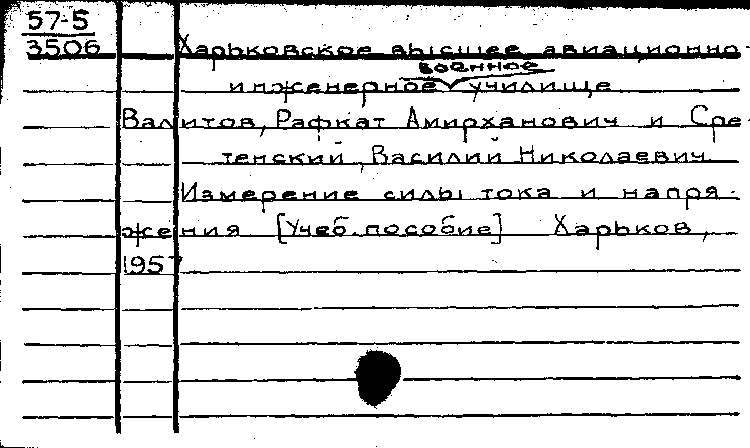 57-5
3506
Харьковское высшее авиационно-
военное
инженерное училище
Валитов, Рафкат Амирханович и Сре-
тенский, Василий Николаевич
Измерение силы тока и напря-
жения [Учеб. пособие] Харьков,
1957